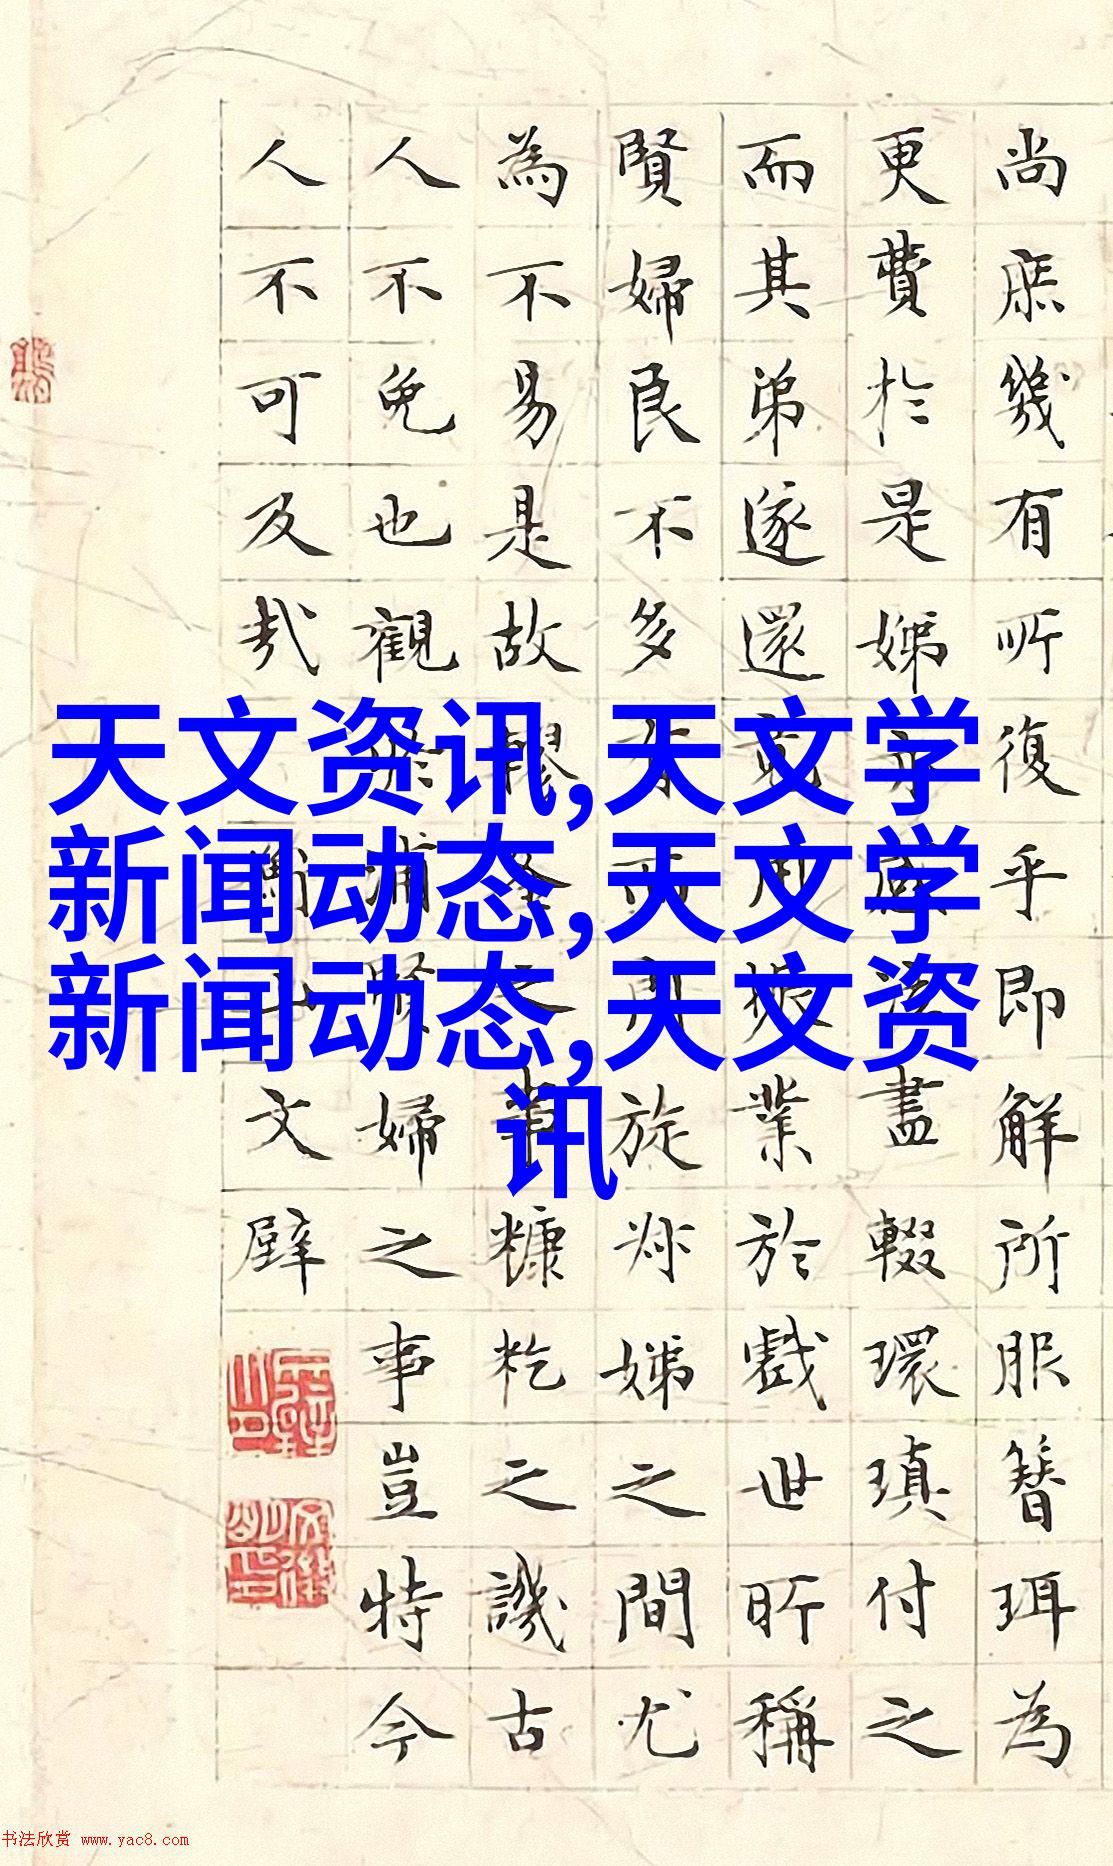 天文资讯,天文学
新闻动态,天文学
新闻动态,天文资
讯
尚庶幾有所復乎即解所服簪珥為
更費於是娣亦感泣盡輟環瑱付之
而其弟遂還用振業於戲世所稱
賢婦民不多有而旋娣之間尤
為不易是故轑釜之糠籺之譏古
人不免也觀於浦賢婦之事豈特今
人不可及哉
衡山文璧
书法欣赏 www.yac8.com